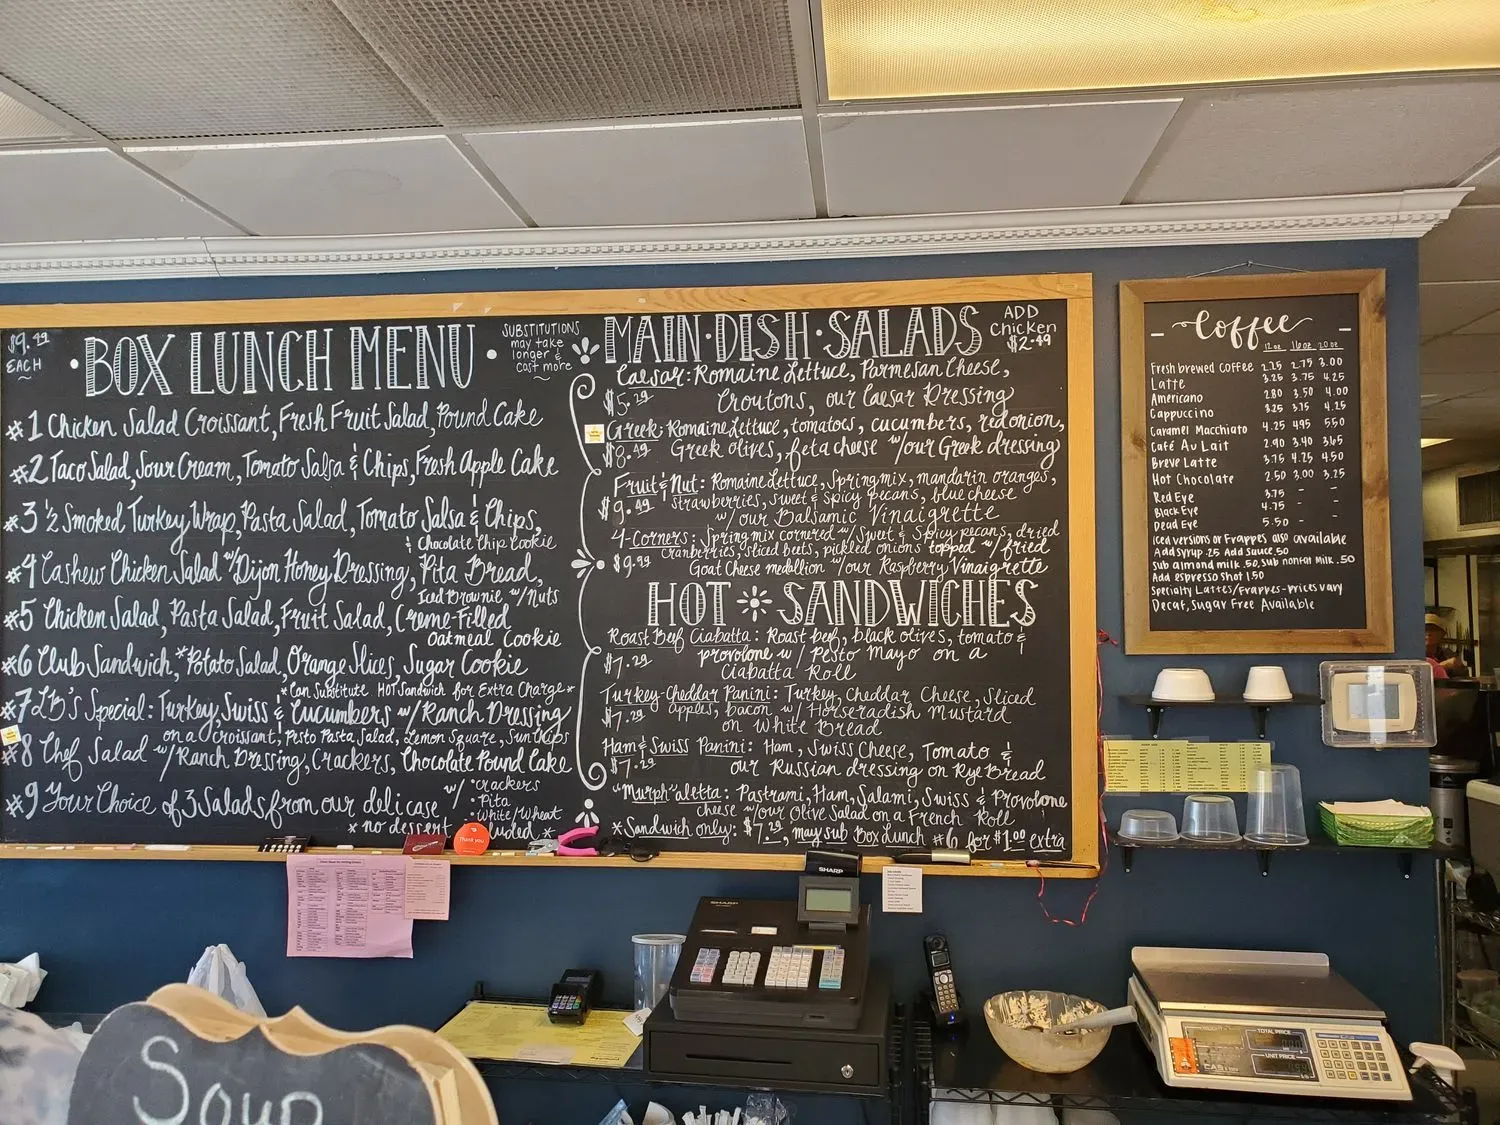 $9.29
EACH
BOX LUNCH MENU
SUBSTITUTIONS
may take
longer &
cost more
#1 Chicken Salad Croissant, Fresh Fruit Salad, Pound Cake
#2 Taco Salad, Sour Cream, Tomato Salsa & Chips, Fresh Apple Cake
#3 1/2 Smoked Turkey Wrap, Pasta Salad, Tomato Salsa & Chips,
& Chocolate Chip Cookie
#4 Cashew Chicken Salad w/Dijon Honey Dressing, Pita Bread,
Iced Brownie w/Nuts
#5 Chicken Salad, Pasta Salad, Fruit Salad, Creme-Filled
Oatmeal Cookie
#6 Club Sandwich, *Potato Salad, Orange Slices, Sugar Cookie
*Can Substitute HOT Sandwich for Extra Charge*
#7 LB's Special: Turkey, Swiss & Cucumbers w/Ranch Dressing
on a croissant, Pesto Pasta Salad, Lemon Square, Sun Chips
#8 Chef Salad w/Ranch Dressing, Crackers, Chocolate Pound Cake
#9 Your Choice of 3 Salads from our deli case w/
• crackers
• Pita
• White/Wheat
* no dessert
MAIN·DISH·SALADS
ADD
Chicken
$2.49
Caesar: Romaine Lettuce, Parmesan Cheese,
$5.29 Croutons, our Caesar Dressing
Greek: Romaine Lettuce, tomatoes, cucumbers, red onion,
$8.49 Greek olives, feta cheese w/our Greek dressing
Fruit & Nut: Romaine Lettuce, Spring mix, mandarin oranges,
$9.49 strawberries, sweet & spicy pecans, blue cheese
w/ our Balsamic Vinaigrette
4-Corners: Spring mix cornered w/Sweet & Spicy pecans, dried
cranberries, sliced beets, pickled onions topped w/ fried
$9.99 Goat Cheese medallion w/our Raspberry Vinaigrette
HOT SANDWICHES
Roast Beef Ciabatta: Roast beef, black olives, tomato &
$7.29 provolone w/ Pesto Mayo on a
Ciabatta Roll
Turkey-Cheddar Panini: Turkey, Cheddar Cheese, Sliced
$7.29 apples, bacon w/ Horseradish Mustard
on White Bread
Ham & Swiss Panini: Ham, Swiss Cheese, Tomato &
$7.29 our Russian dressing on Rye Bread
"Murph"aletta: Pastrami, Ham, Salami, Swiss & Provolone
cheese w/our Olive Salad on a French Roll
*Sandwich only: $7.29, may sub Box Lunch #6 for $1.00 extra
Coffee
12oz 16oz 20oz
Fresh brewed coffee 2.25 2.75 3.00
Latte 3.25 3.75 4.25
Americano 2.80 3.50 4.00
Cappuccino 3.25 3.75 4.25
Caramel Macchiato 4.25 4.95 5.50
Café Au Lait 2.90 3.40 3.65
Breve Latte 3.75 4.25 4.50
Hot Chocolate 2.50 3.00 3.25
Red Eye 3.75 - -
Black Eye 4.75 - -
Dead Eye 5.50 - -
Iced versions or Frappes also available
Add syrup .25 Add Sauce .50
Sub almond milk .50, sub nonfat milk .50
Add espresso shot 1.50
Specialty Lattes/Frappes-prices vary
Decaf, Sugar Free Available
Thank you
SHARP
SHARP
TOTAL PRICE
UNIT PRICE
CAS
Soup